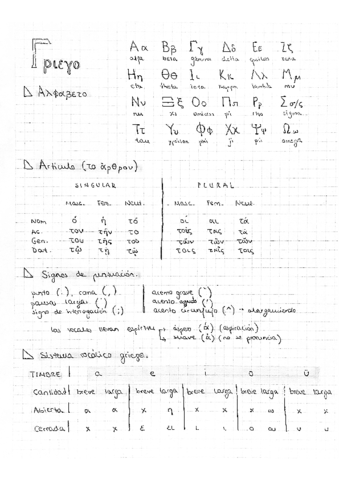 Γριεγο
Αα Ββ Γγ Δδ Εε Ζζ
alfa beta gamma delta épsilon zeta
Ηη Θθ Ιι Κκ Λλ Μμ
eta theta iota kappa lambda mu
Αλφαβετο
Νν Ξξ Οο Ππ Ρρ Σσ/ς
nu xi ómicron pi rho sigma
Ττ Υυ Φφ Χχ Ψψ Ωω
tau ípsilon ji psi omega
Artículo (το ἄρθρον)
SINGULAR PLURAL
Masc. Fem. Neut. Masc. Fem. Neut.
Nom ὁ ἡ τό οἱ αι τά
Ac. τον τήν το τοίς τας τά
Gen. του τῆς του τῶν τῶν τῶν
Dat. τῷ τῇ τῷ τοῖς ταῖς τοῖς
Signos de puntuación.
punto (.), coma (,) acento grave (`)
pausas largas (·) acento agudo (´)
signo de interrogación (;) acento circunflejo (^) → alargamiento
las vocales llevan espíritu → áspero (ἁ) (aspiración)
→ suave (ἀ) (no se pronuncia)
Sistema vocálico griego.
TIMBRE a e i o ü
Cantidad breve larga breve larga breve larga breve larga breve larga
Abierta α α x η x x x ω x x
Cerrada x x ε ει ι ι ο ου υ υ